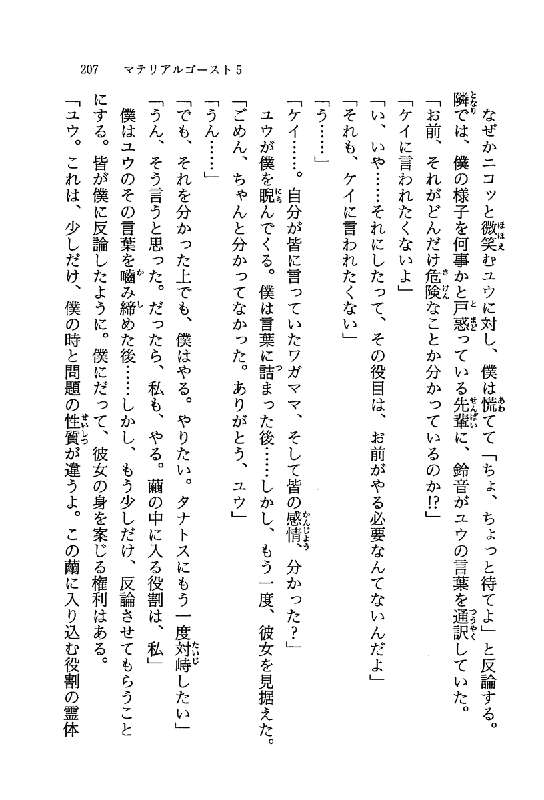 207　マテリアルゴースト5
なぜかニコッと微笑むユウに対し、僕は慌てて「ちょ、ちょっと待てよ」と反論する。
隣では、僕の様子を何事かと戸惑っている先輩に、鈴音がユウの言葉を通訳していた。
「お前、それがどんだけ危険なことか分かっているのか!?」
「ケイに言われたくないよ」
「い、いや……それにしたって、その役目は、お前がやる必要なんてないんだよ」
「それも、ケイに言われたくない」
「う……」
「ケイ……。自分が皆に言っていたワガママ、そして皆の感情、分かった？」
ユウが僕を睨んでくる。僕は言葉に詰まった後……しかし、もう一度、彼女を見据えた。
「ごめん、ちゃんと分かってなかった。ありがとう、ユウ」
「うん……」
「でも、それを分かった上でも、僕はやる。やりたい。タナトスにもう一度対峙したい」
「うん、そう言うと思った。だったら、私も、やる。繭の中に入る役割は、私」
僕はユウのその言葉を噛み締めた後……しかし、もう少しだけ、反論させてもらうこと
にする。皆が僕に反論したように。僕にだって、彼女の身を案じる権利はある。
「ユウ。これは、少しだけ、僕の時と問題の性質が違うよ。この繭に入り込む役割の霊体